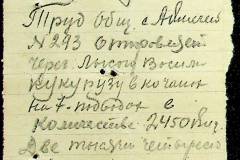 Труд общ. с
N 293 Отправляет
через Лысова Васил
кукурузу в кочанах
на 7 подводах в
количестве 2450 кг.
Две тысячи четыреста